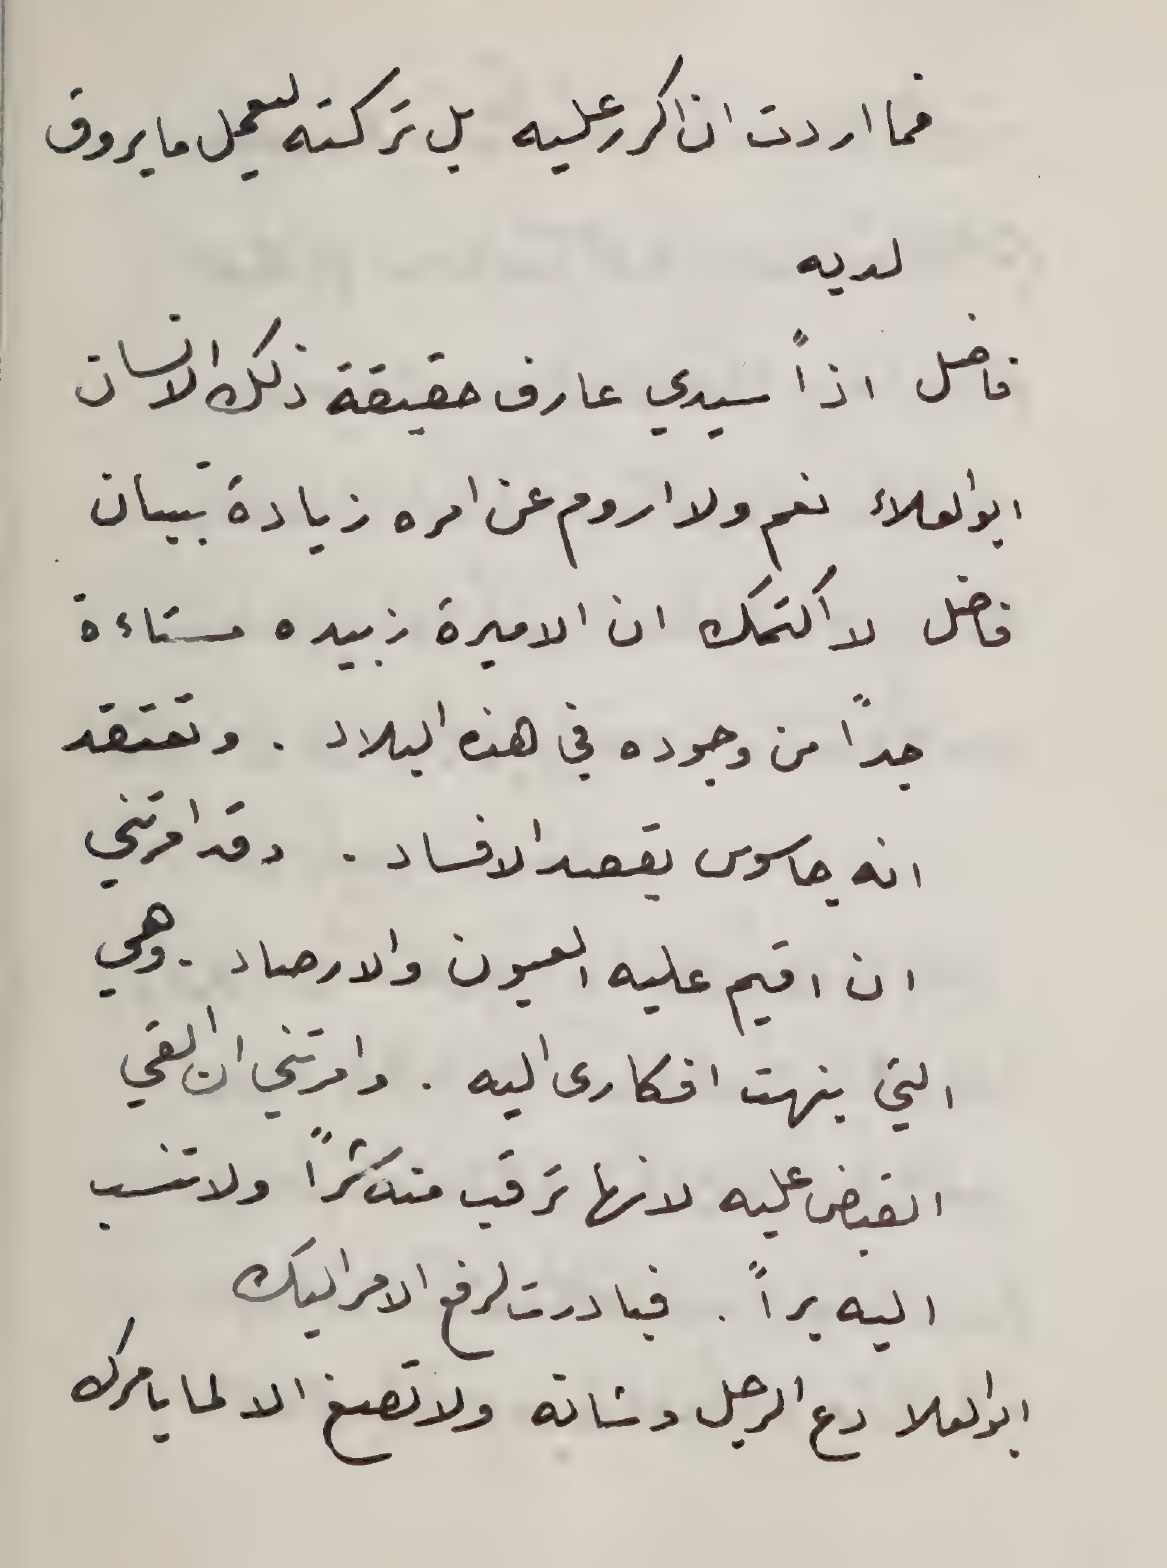 فما اردت ان اكرر عليه بل تركته ليعمل ما يروق
لديه
فاضل اذاً سيدي عارف حقيقة ذلك الانسان
ابو العلاء نعم ولا اروم عن امره زيادة تبيان
فاضل لا اكتمك ان الاميرة زبيده مستاءة
جداً من وجوده في هذه البلاد . وتعتقد
انه جاسوس يقصد الافساد . وقد امرتني
ان اقيم عليه العيون والارصاد . وهي
التي نبهت افكارى اليه . وامرتني ان القي
القبض عليه لانها ترقب منه شراً ولا تنسب
اليه براً . فبادرت لرفع الامر اليك
ابو العلا دع الرجل وشانه ولا تصغ الا لما يامرك